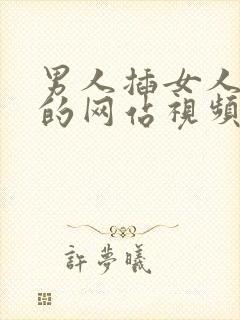 男人插女人
的网佔視頻
許夢曦